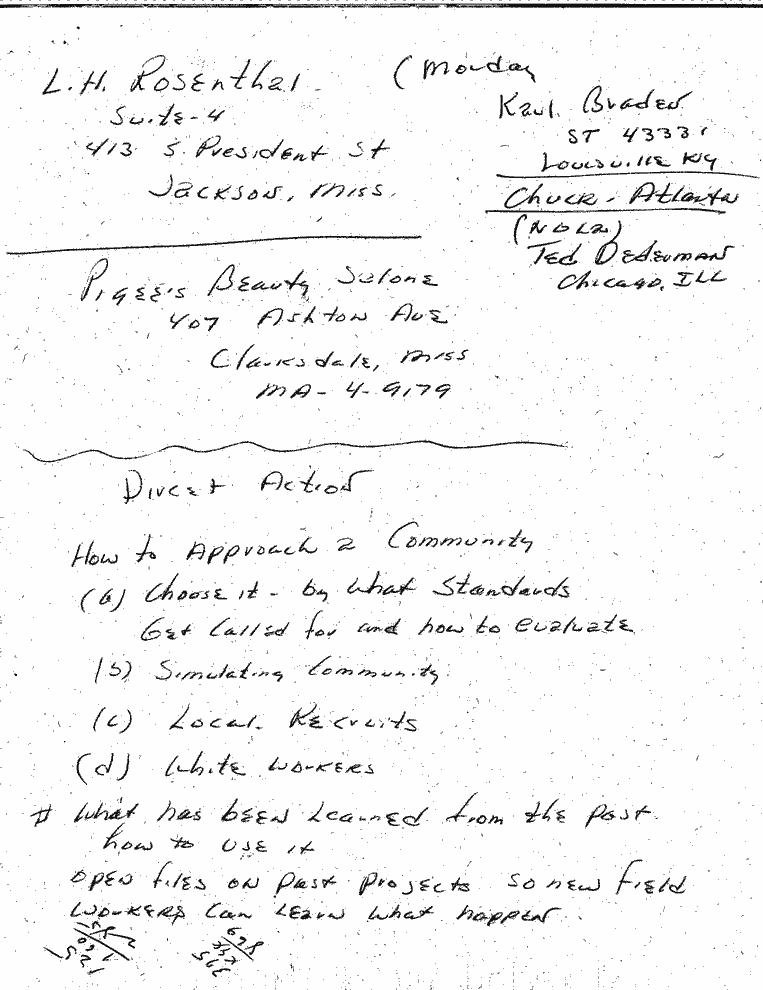 L.H. Rosenthal
Suite-4
413 S. President St
Jackson, Miss.
(Monday
Karl Braden
ST 43331
Louisville Ky
Chuck - Atlanta
(NDLZ)
Ted Dedeurman
Chicago, ILL
Pigee's Beauty Salone
407 Ashton Ave
Clarksdale, Miss
MA-4-9179
Direct Action
How to Approach a Community
(a) Choose it - by what Standards
Get Called for and how to evaluate
(b) Simulating Community
(c) Local Recruits
(d) White Workers
# What has been Learned from the past
how to use it
open files on past projects so new field
workers can learn what happen